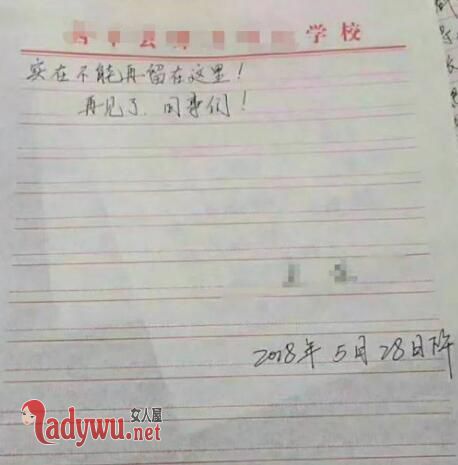 学校
实在不能再留在这里！
再见了．同事们！
2018年5月28日下午
女人屋
ladywu.net